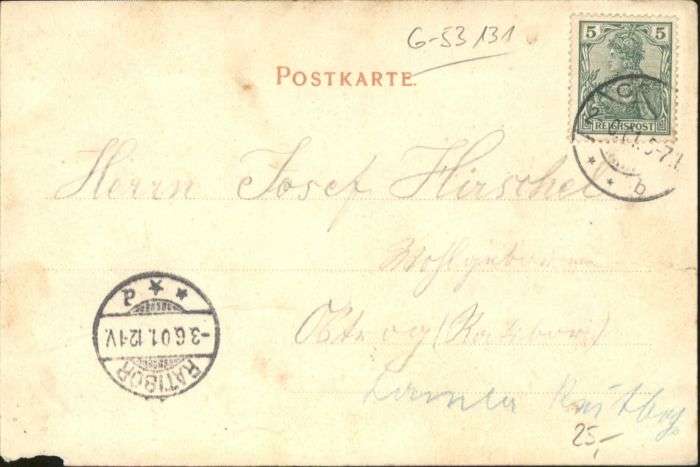 G-53/131
POSTKARTE.
5 5
REICHSPOST
b
Herrn Josef Hirschel
Wohlgeboren
Ostrog (Ratibor)
25,-
P
-3.6.01.12-1V.
RATIBOR